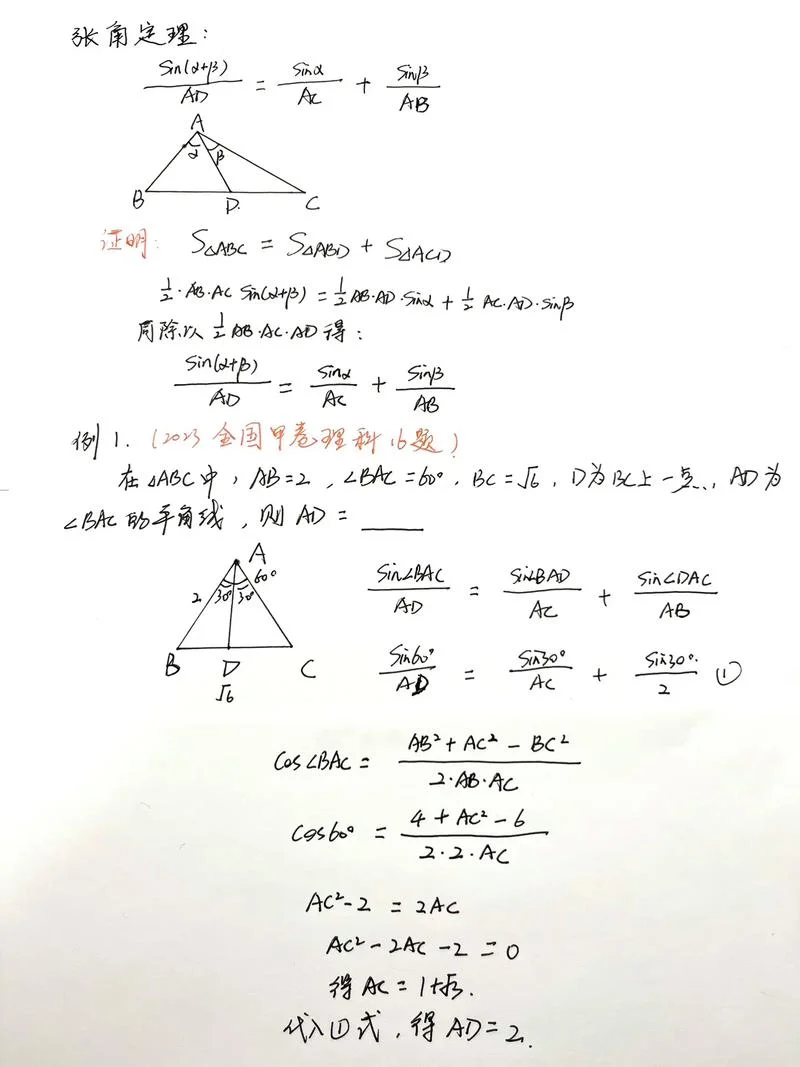 张角定理:
sin(α+β)/AD = sinα/AC + sinβ/AB
A
α β
B D C
证明: S△ABC = S△ABD + S△ACD
1/2·AB·AC sin(α+β) = 1/2 AB·AD·sinα + 1/2 AC·AD·sinβ
同除以 1/2 AB·AC·AD 得:
sin(α+β)/AD = sinα/AC + sinβ/AB
例1. (2023全国甲卷理科16题)
在△ABC中, AB=2, ∠BAC=60°, BC=√6, D为BC上一点, AD为
∠BAC的平角线, 则AD= ____
A
60°
2 30° 30°
B D C
√6
sin∠BAC/AD = sin∠BAD/AC + sin∠DAC/AB
sin60°/AD = sin30°/AC + sin30°/2 ①
cos∠BAC = AB²+AC²-BC²/2·AB·AC
cos60° = 4+AC²-6/2·2·AC
AC²-2 = 2AC
AC²-2AC-2=0
得AC=1+√3.
代入①式, 得AD=2.